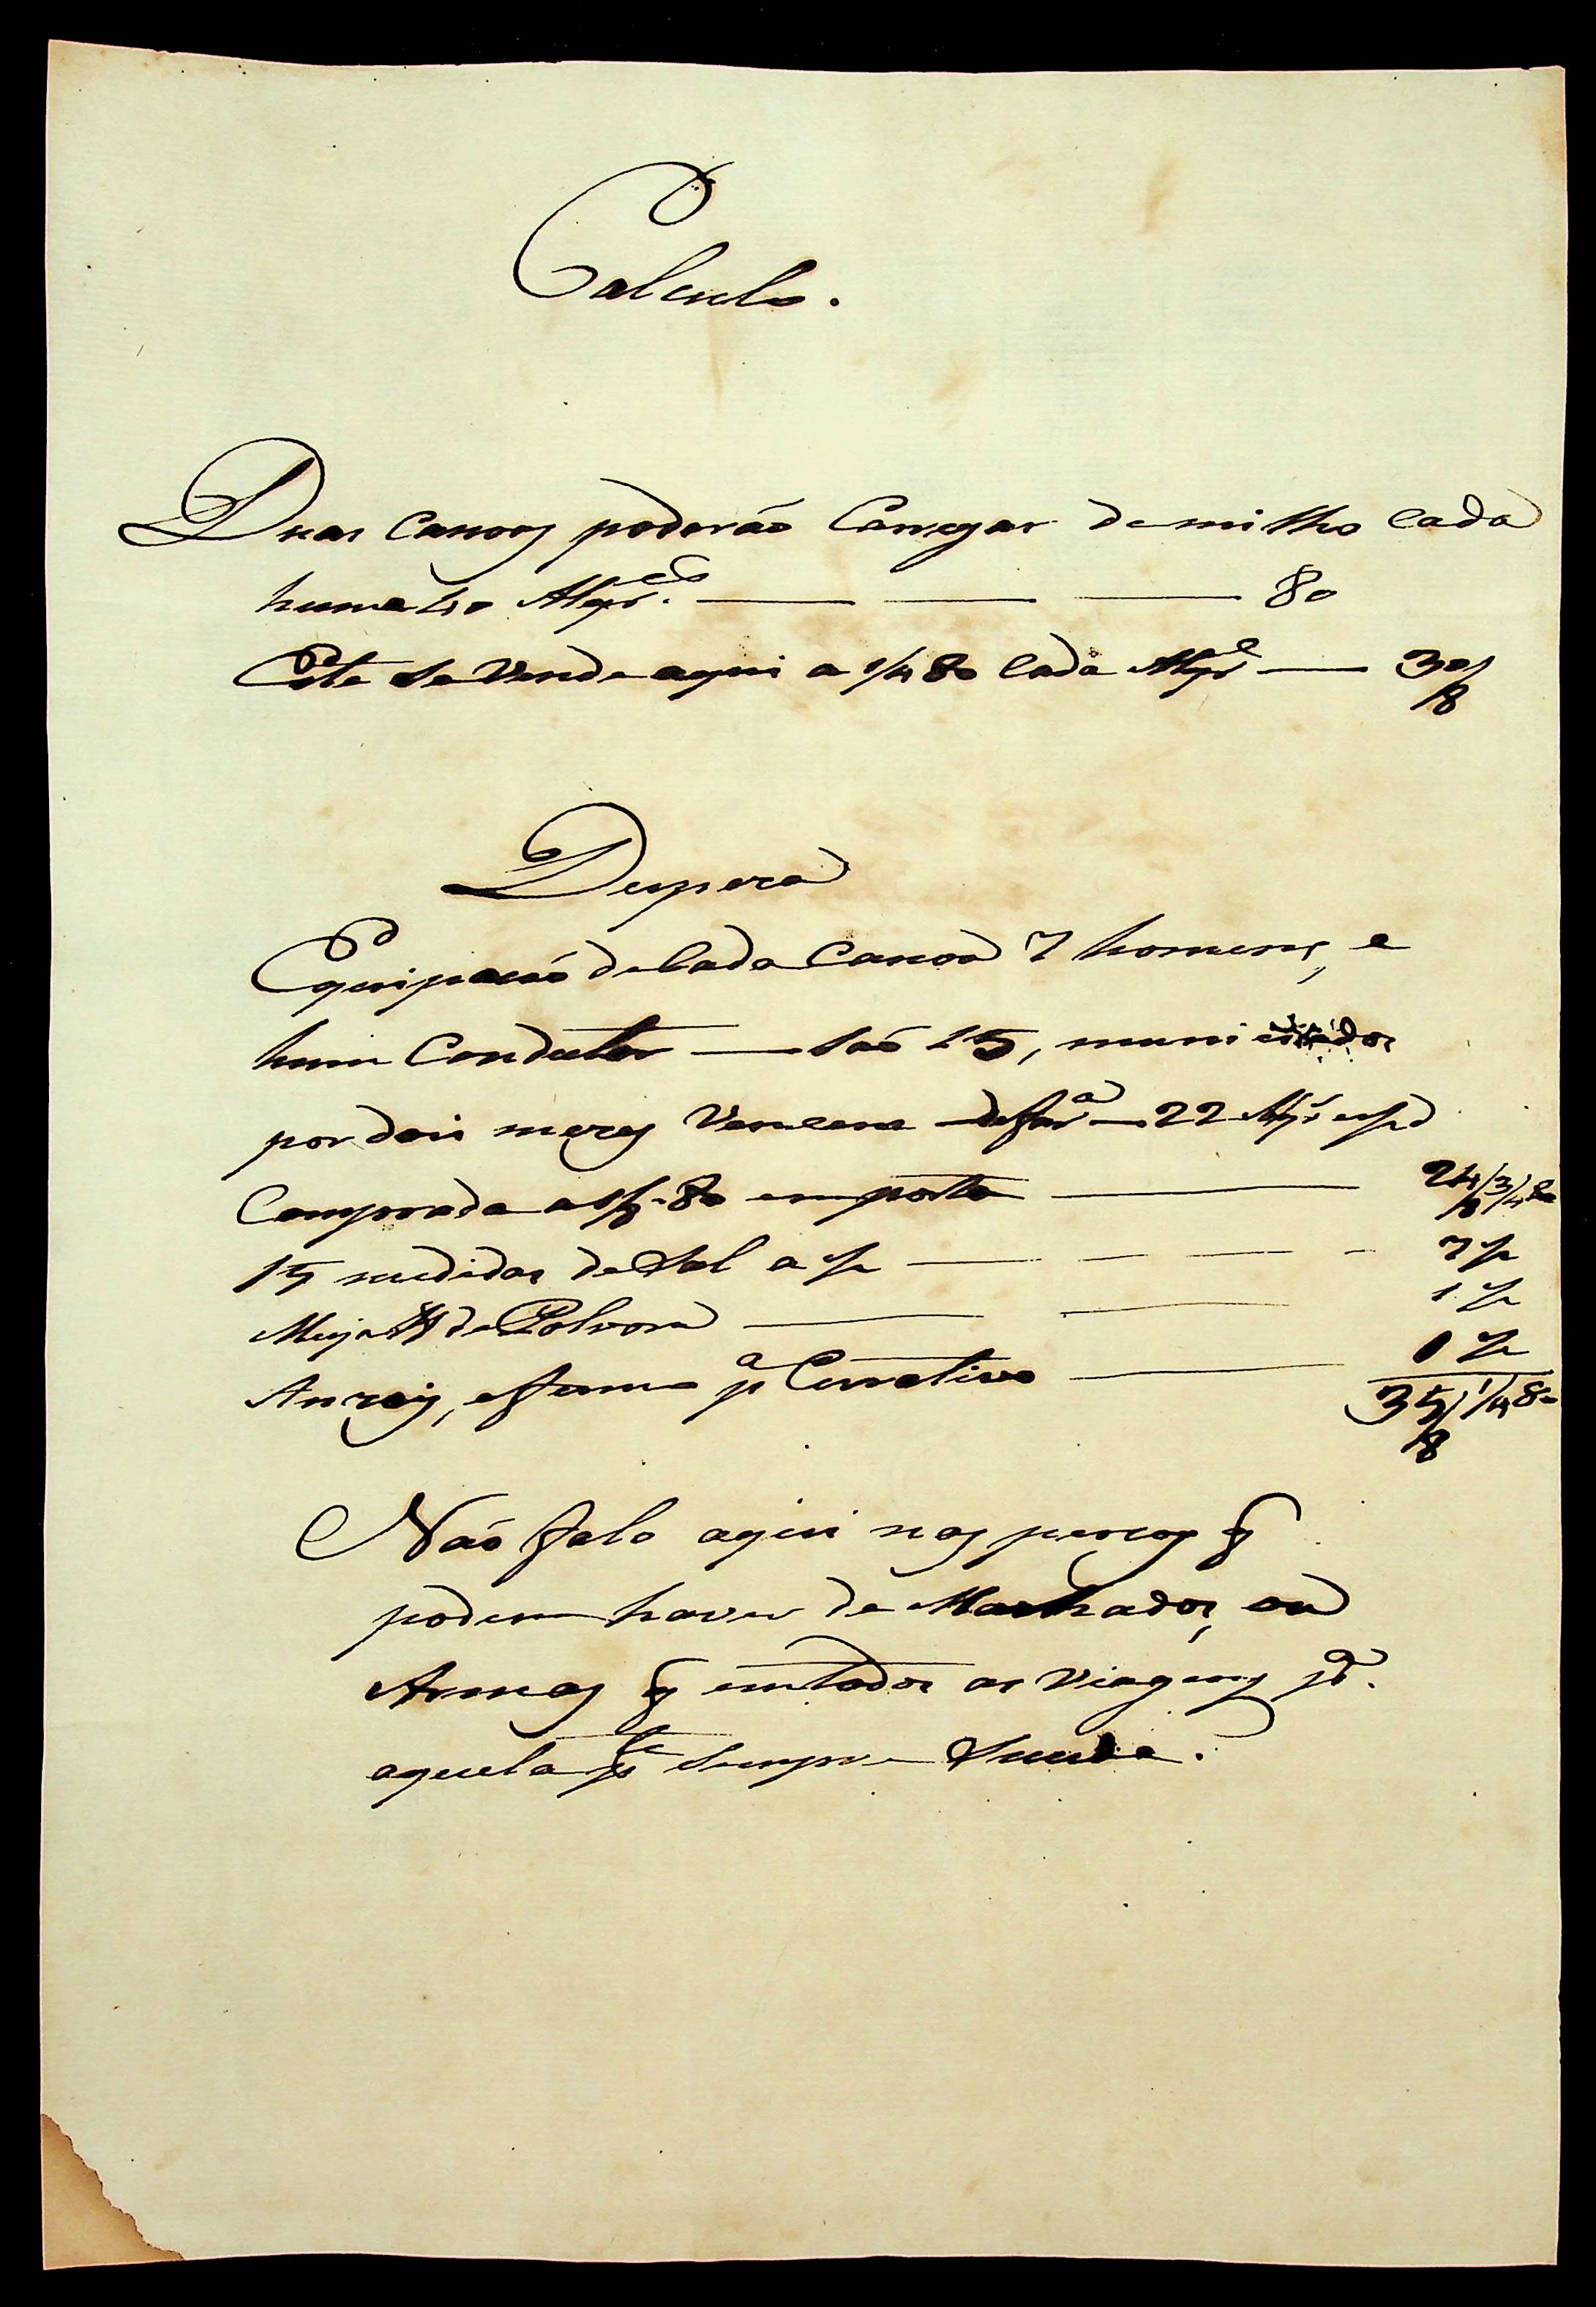 Calculo.
Duas Canoas poderáo Carregar de milho Cada
huma 40 Alqr.es 80
Este se Vende aqui a 1/4 80 Cada Alqr.e 30/8
Despeza
Equipaçaó de Cada Canoa 7 homens, e
hum Condutor saó 15, municiados
por dois mezes Vencem de far.a 22 Alqr.s e 1/2
Comprada a 1/8 80 emporta 24/8 3/4 80
15 medidas de Sal a 1/2 7 1/2
Meya lb de Polvora 1 1/2
Anzois, e fumo p.a Curativo 1 1/2
35/8 1/4 80
Naó falo aqui nas percas q
podem haver de Machados, ou
Armas q em todas as Viagens p.a
aquela p.te sempre Sucede.